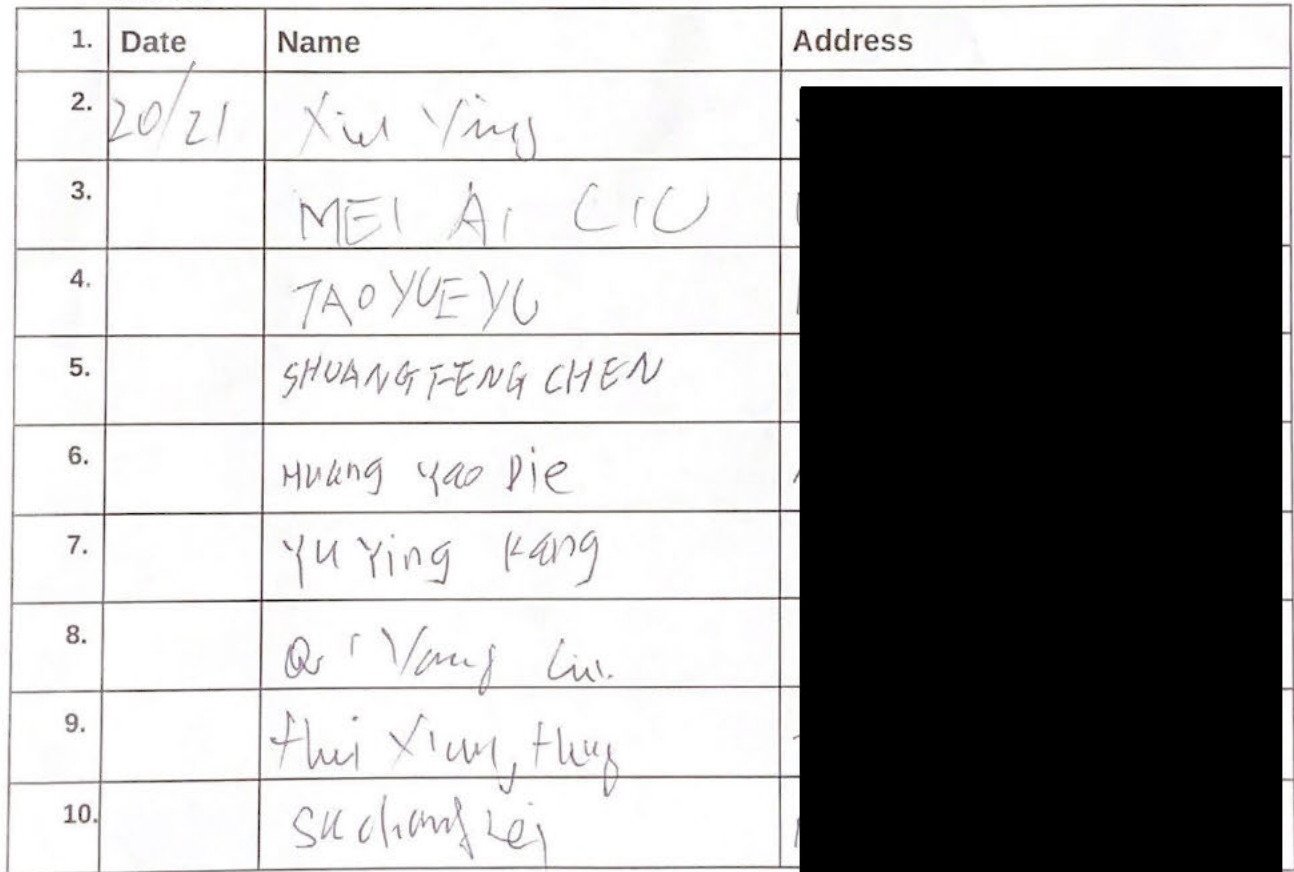 1. Date Name Address
2. 20/21 Xiu Ying
3. MEI Ai LIU
4. TAO YUE YU
5. SHUANG FENG CHEN
6. Huang yao Die
7. Yu Ying Kang
8. Qi Yong Liu.
9.
10. Su chang Lei